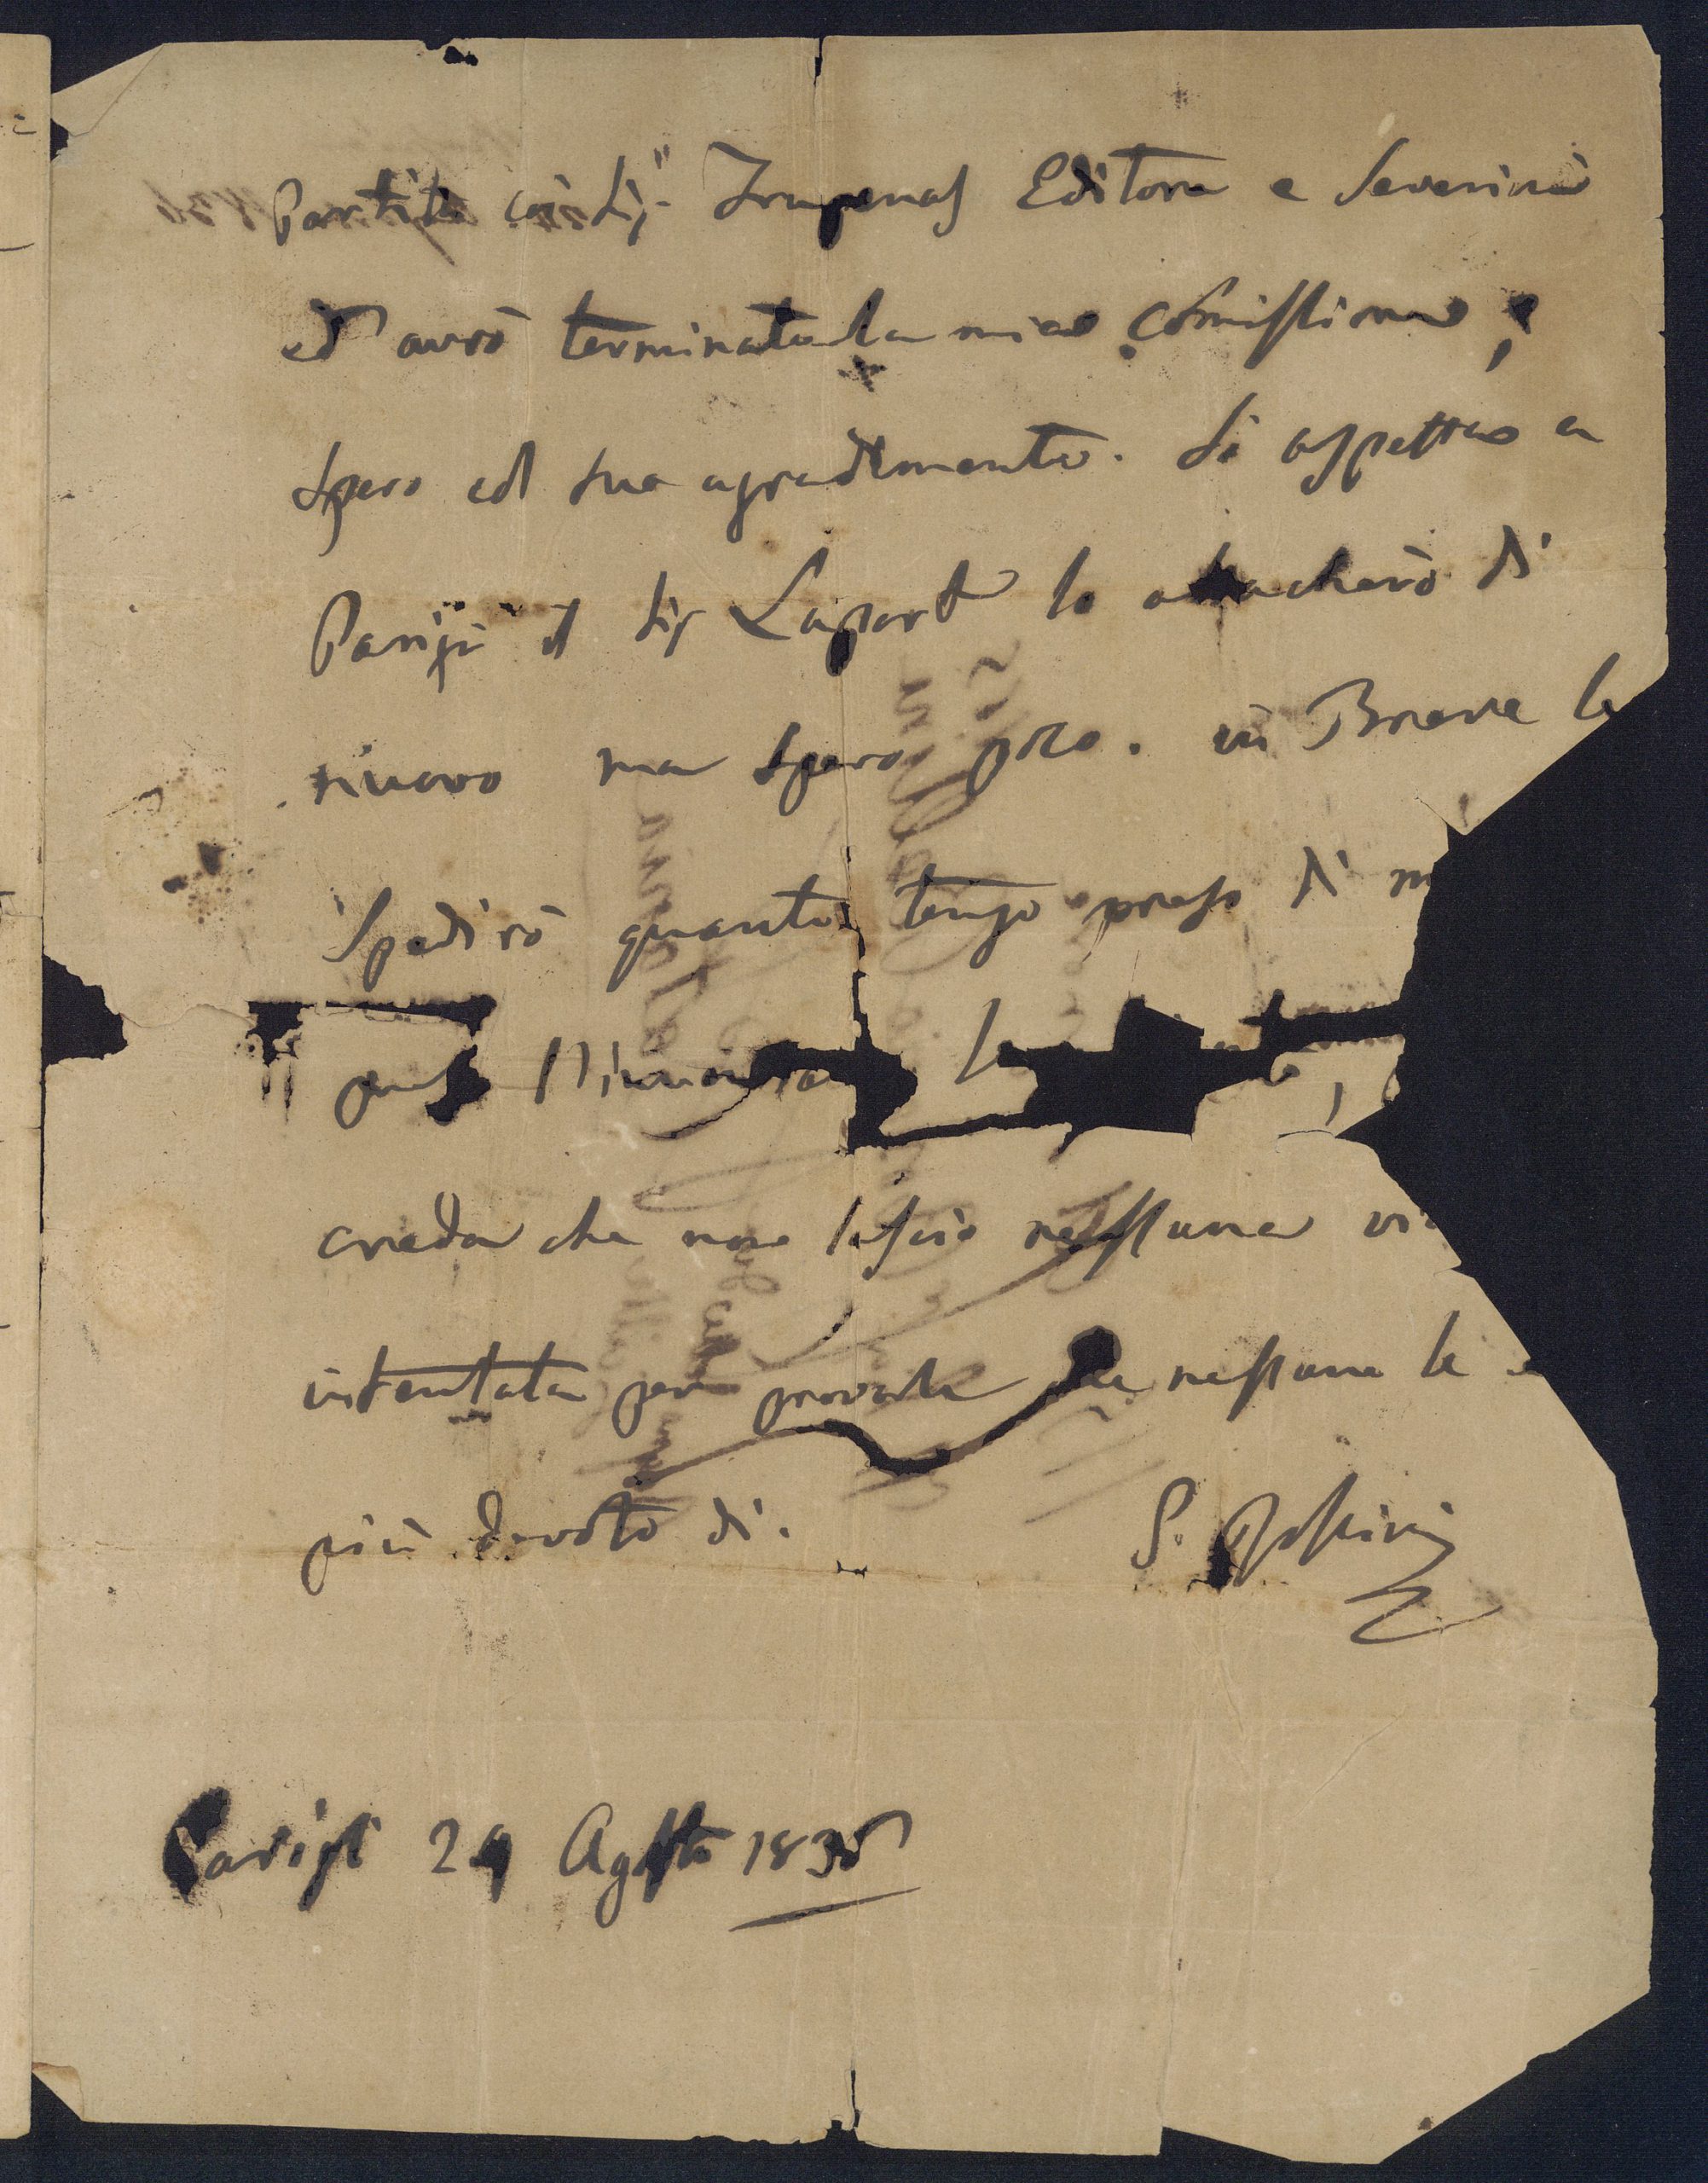 Partita coi Sig.ri Troupenas Editore e Severini
ed avrò terminata la mia comissione,
spero ed suo agradimento. Si aspetta a
Parigi il Sig Laport lo attacherò di
nuovo ma spero poco. in Breve le
Spedirò quanto tengo presso di
creda che non lascio nessuna
intentata per provarle che nessuno le
più devoto di.
G. Rossini
Parigi 29 Agosto 1835